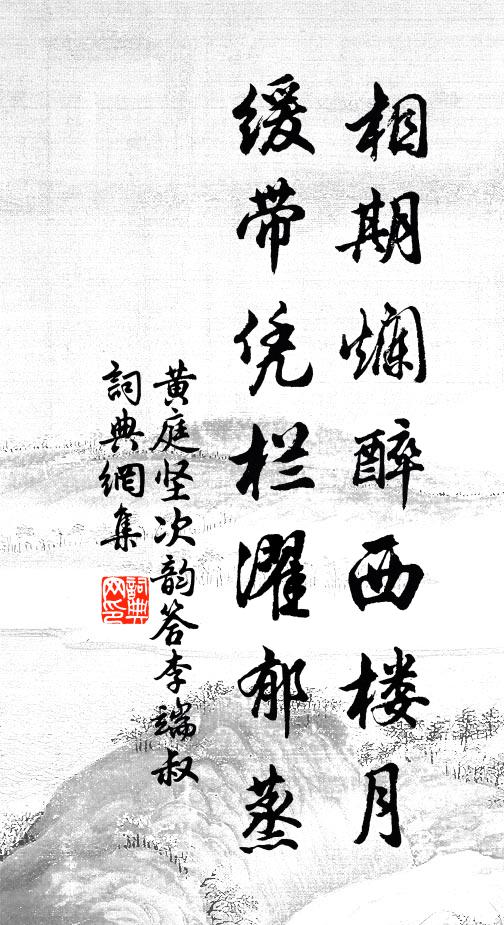 相期烂醉西楼月
缓带凭栏濯郁蒸
黄庭坚次韵答李端叔
詞典網集
詞典网印